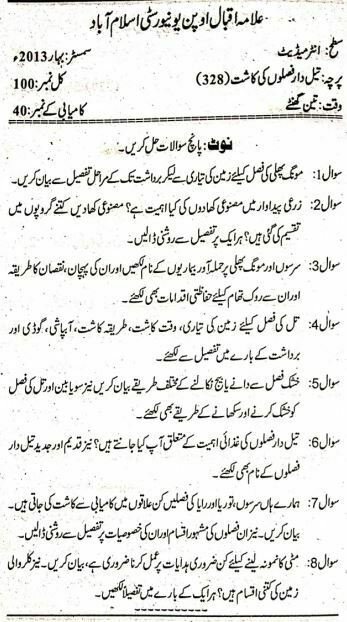 علامہ اقبال اوپن یونیورسٹی اسلام آباد
سطح: انٹرمیڈیٹ سمسٹر: بہار 2013ء
پرچہ: تیل دار فصلوں کی کاشت (328) کل نمبر: 100
وقت: تین گھنٹے کامیابی کے نمبر: 40
نوٹ: پانچ سوالات حل کریں۔
سوال 1: مونگ پھلی کی فصل کیلئے زمین کی تیاری سے لیکر برداشت تک کے مراحل تفصیل سے بیان کریں۔
سوال 2: زرعی پیداوار میں مصنوعی کھادوں کی کیا اہمیت ہے؟ مصنوعی کھادیں کتنے گروپوں میں
تقسیم کی گئی ہیں؟ ہر ایک پر تفصیل سے روشنی ڈالیں۔
سوال 3: سرسوں اور مونگ پھلی پر حملہ آور بیماریوں کے نام لکھیں اور ان کی پہچان، نقصان کا طریقہ
اور ان سے روک تھام کیلئے حفاظتی اقدامات بھی لکھئے۔
سوال 4: تل کی فصل کیلئے زمین کی تیاری، وقت کاشت، طریقہ کاشت، آبپاشی، گوڈی اور
برداشت کے بارے میں تفصیل سے لکھئے۔
سوال 5: خشک فصل سے دانے یا بیج نکالنے کے مختلف طریقے بیان کریں نیز سویابین اور تل کی فصل
کو خشک کرنے اور سکھانے کے طریقے بھی لکھئے۔
سوال 6: تیل دار فصلوں کی غذائی اہمیت کے متعلق آپ کیا جانتے ہیں؟ نیز قدیم اور جدید تیل دار
فصلوں کے نام بھی لکھئے۔
سوال 7: ہمارے ہاں سرسوں، توریا اور رایا کی فصلیں کن علاقوں میں کامیابی سے کاشت کی جاتی ہیں۔
بیان کریں۔ نیز ان فصلوں کی مشہور اقسام اور ان کی خصوصیات پر تفصیل سے روشنی ڈالیں۔
سوال 8: مٹی کا نمونہ لینے کیلئے کن ضروری ہدایات پر عمل کرنا ضروری ہے، بیان کریں۔ نیز کلر والی
زمین کی کتنی اقسام ہیں؟ ہر ایک کے بارے میں تفصیلاً لکھیں۔